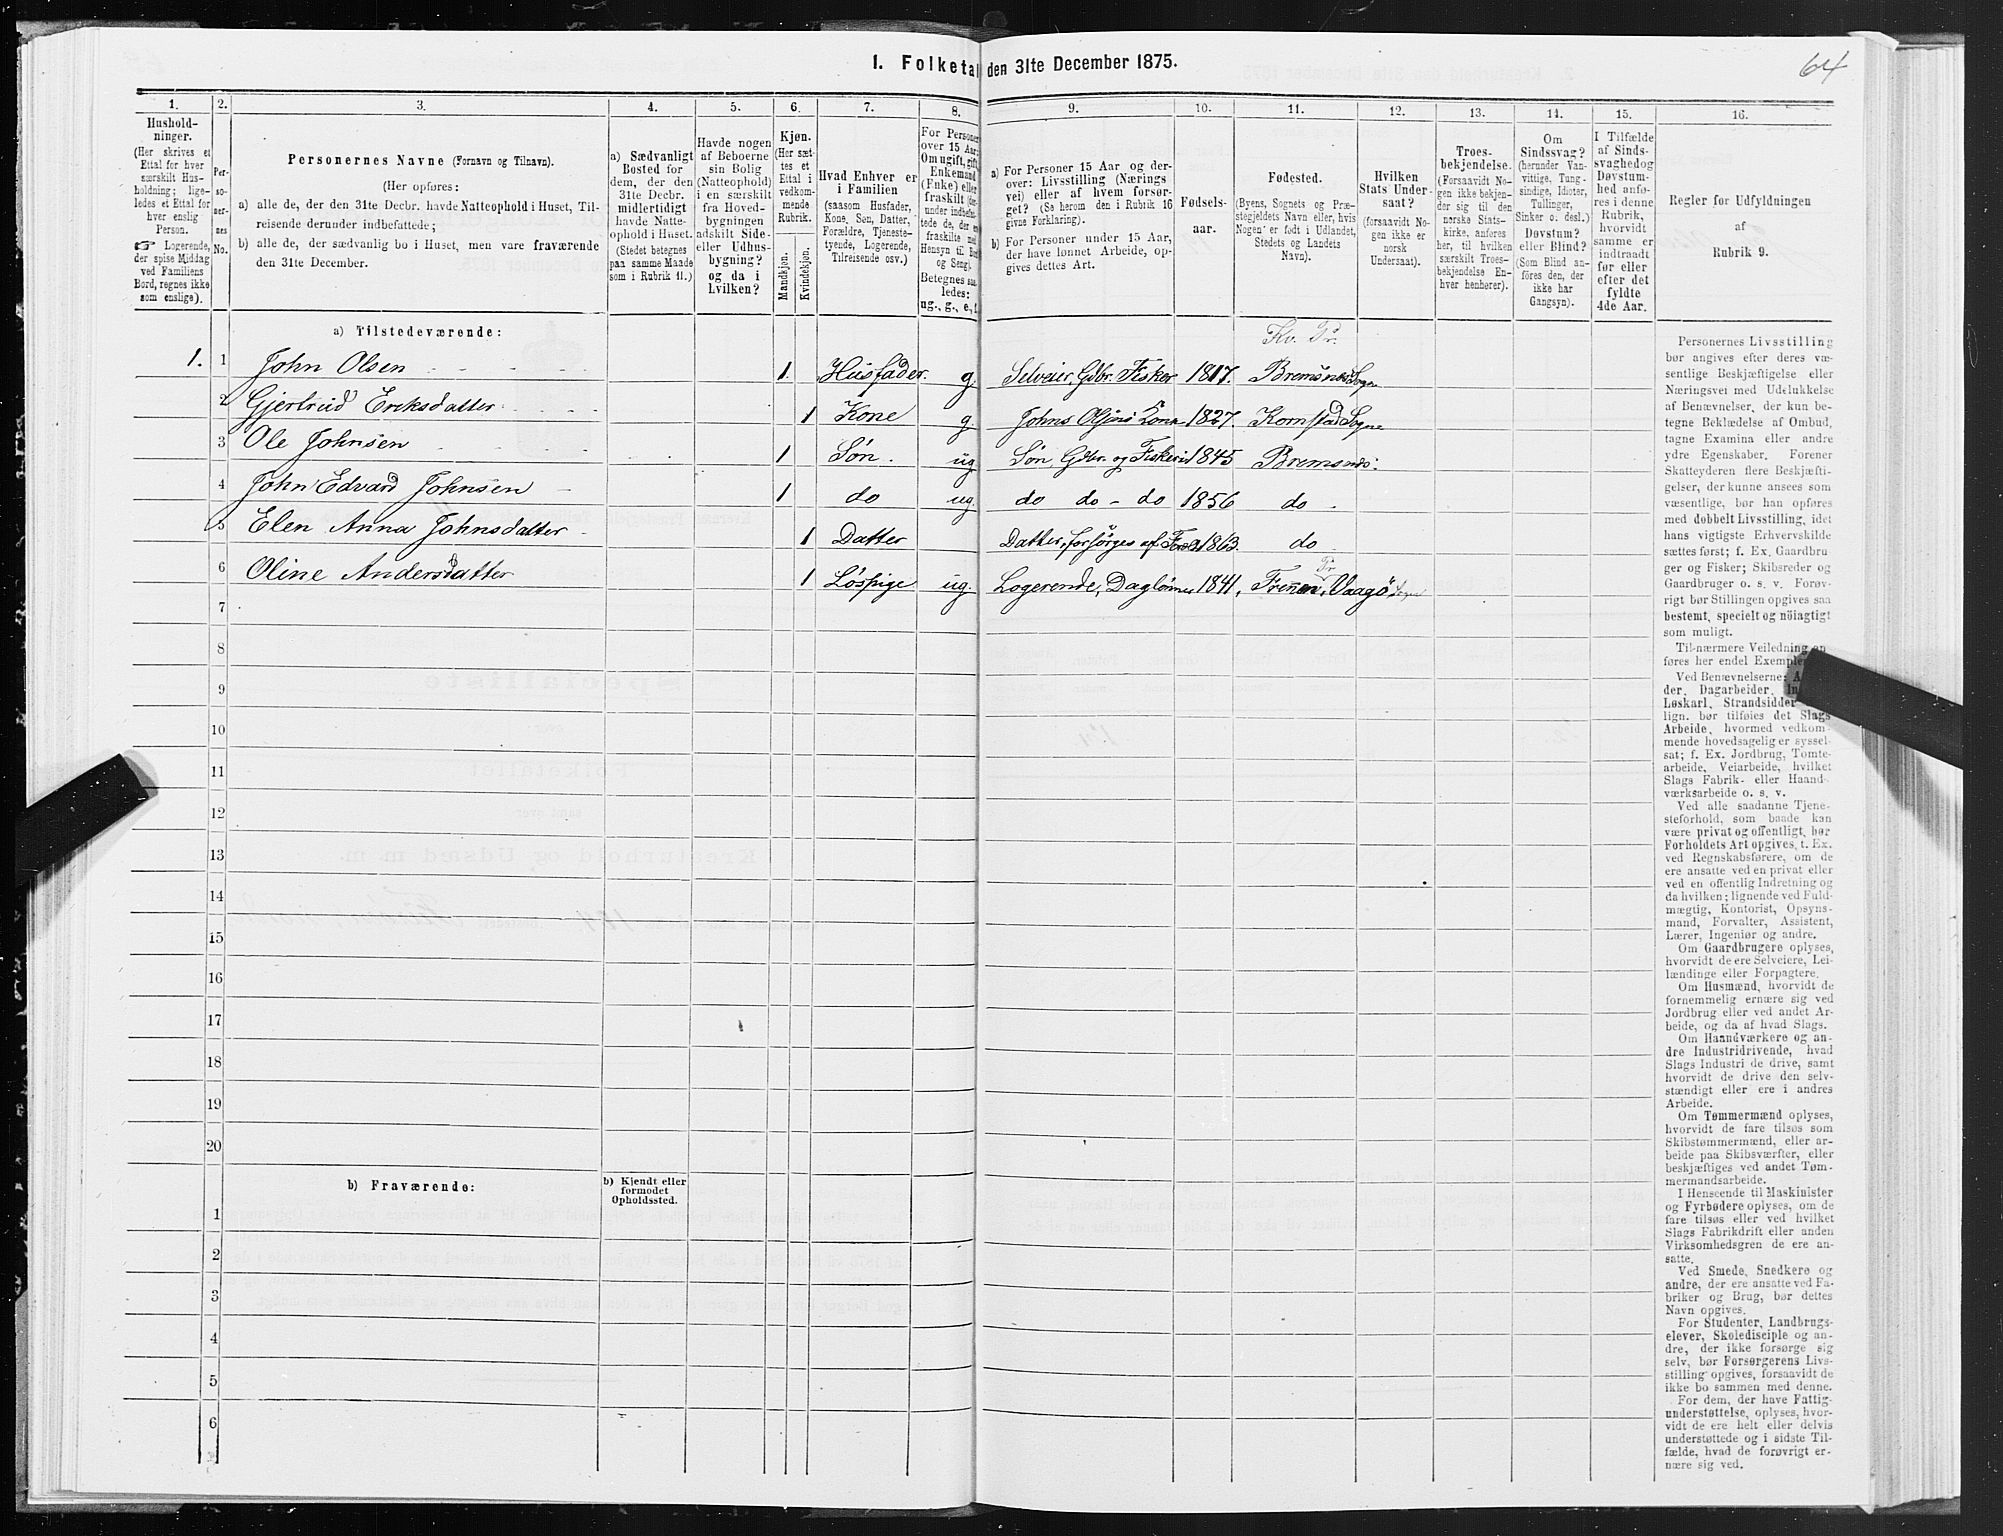 64
1. Folketal den 31te December 1875.
1. 2. 3. 4. 5. 6. 7. 8. 9. 10. 11. 12. 13. 14. 15. 16.
Hushold-
ninger.
(Her skrives et
Ettal for hver
særskilt Hus-
holdning; lige-
ledes et Ettal for
hver enslig
Person.
☞ Logerende,
der spise Middag
ved Familiens
Bord, regnes ikke
som enslige).
Per-
so-
ner-
nes
No.
Personernes Navne (Fornavn og Tilnavn).
(Her opføres:
a) alle de, der den 31te Decbr. havde Natteophold i Huset, Til-
reisende derunder indbefattede;
b) alle de, der sædvanlig bo i Huset, men vare fraværende
den 31te December.
a) Sædvanligt
Bosted for
dem, der den
31te Decbr.
midlertidigt
havde Natte-
ophold i Huset.
(Stedet betegnes
paa samme Maade
som i Rubrik 11.)
Havde nogen
af Beboerne
sin Bolig
(Natteophold)
i en særskilt
fra Hoved-
bygningen
adskilt Side-
eller Udhus-
bygning?
og da i
hvilken?
Kjøn.
(Her sæt-
tes et
Ettal i
vedkom-
mende
Rubrik.
Mandkjøn.
Kvindekjøn.
Hvad Enhver er
i Familien
(saasom Husfader,
Kone, Søn, Datter,
Forældre, Tjeneste-
tyende, Logerende,
Tilreisende osv.)
For Personer
over 15 Aar:
Om ugift, gift,
Enkemand
(Enke) eller
fraskilt
Betegnes saa-
ledes:
ug., g., e., f.
a) For Personer 15 Aar og der-
over: Livsstilling (Nærings
vei) eller af hvem forsør-
get? (Se herom den i Rubrik 16
givne Forklaring).
b) For Personer under 15 Aar,
der have lønnet Arbeide, op-
gives dettes Art.
Fødsels-
aar.
Fødested.
(Byens, Sognets og Præ-
stegjeldets Navn eller, hvis
Nogen er født i Udlandet,
Stedets og Landets
Navn).
Hvilken
Stats Under-
saat?
(forsaavidt No-
gen ikke er
norsk
Undersaat).
Troes-
bekjendelse.
(Forsaavidt No-
gen ikke bekjen-
der sig til den
norske Stats-
kirke, anføres
her, til hvilken
særskilt Troes-
bekjendelse En-
hver henhører).
Om
Sindssvag?
(herunder Van-
vittige, Tung-
sindige, Idioter,
Tullinger,
Sinker o. desl.)
Døvstum?
eller Blind?
(Som Blind an-
føres den, der
ikke har
Gangsyn).
I Tilfælde
af Sinds-
svaghed og
Døvstum-
hed anfø-
res i denne
Rubrik,
hvorvidt
samme er
indtraadt
før eller
efter det
fyldte
4de Aar.
Regler for Udfyldningen
af
Rubrik 9.
a) Tilstedeværende:
Kv. Pr.
1. 1 John Olsen 1. Husfader. g. Selveier, Gdbr. Fisker 1817. Bremsnes Sogn
2 Gjertrud Eriksdatter 1 Kone g. Johns Olsens Kone 1827. Kornstad Sogn
3 Ole Johnsen 1 Søn. ug. Søn Gdbr. og Fiskeri 1845 Bremsnes.
4 John Edvard Johnsen 1 do ug. do do - do 1856 do.
5 Elen Anna Johnsdatter 1 Datter Datter, forsørges af 1863. do
Pr
6 Oline Andersdatter 1 Løspige ug. Logerende, Daglønner 1841, Frenen, Vaagø Sogn
7
8
9
10
11
12
13
14
15
16
17
18
19
20
b) Fraværende:
b) Kjendt eller
formodet
Opholdssted.
1
2
3
4
5
6
Personernes Livsstilling
bør angives efter deres væ-
sentlige Beskjæftigelse eller
Næringsvei med Udelukkelse
af Benævnelser, der kun be-
tegne Beklædelse af Ombud,
tagne Examina eller andre
ydre Egenskaber. Forener
Skatteyderen flere Beskjæfti-
gelser, der kunne ansees som
væsentlige, bør han opføres
med dobbelt Livsstilling, idet
hans vigtigste Erhvervskilde
sættes først; f. Ex. Gaardbru-
ger og Fisker; Skibsreder og
Gaardbruger o. s. v. Forøv-
rigt bør Stillingen opgives saa
bestemt, specielt og nöiagtigt
som muligt.
Til nærmere Veiledning an-
føres her endel Exempler:
Ved Benævnelserne:
der, Dagarbeider,
Løskarl, Strandsidder
lign. bør tilføies det Slags
Arbeide, hvormed vedkom-
mende hovedsagelig er syssel-
sat; f. Ex. Jordbrug, Tomte-
arbeide, Veiarbeide, hvilket
Slags Fabrik- eller Haand-
værksarbeide o. s. v.
Ved alle saadanne Tjene-
steforhold, som baade kan
være privat og offentligt, bør
Forholdets Art opgives, t. Ex.
ved Regnskabsførere, om de
ere ansatte ved en privat eller
ved en offentlig Indretning og
da hvilken; lignende ved Fuld-
mægtig, Kontorist, Opsyns-
mand, Forvalter, Assistent,
Lærer, Ingeniør og andre.
Om Gaardbrugere oplyses,
hvorvidt de ere Selveiere, Lei-
lændinge eller Forpagtere.
Om Husmænd, hvorvidt de
fornemmelig ernære sig ved
Jordbrug eller ved andet Ar-
beide, og da af hvad Slags.
Om Haandværkere og an-
dre Industridrivende, hvad
Slags Industri de drive, samt
hvorvidt de drive den selv-
stændigt eller ere i andres
Arbeide.
Om Tømmermænd oplyses,
hvorvidt de fare tilsøs som
Skibstømmermænd, eller ar-
beide paa Skibsværfter, eller
beskjæftiges ved andet Tøm-
mermandsarbeide.
I Henseende til Maskinister
og Fyrbødere oplyses, om de
fare tilsøs eller ved hvilket
Slags Fabrikdrift eller anden
Virksomhedsgren de ere an-
satte.
Ved Smede, Snedkere og
andre, der ere ansatte ved Fa-
briker og Brug, bør dettes
Navn opgives.
For Studenter, Landbrugs-
elever, Skoledisciple og an-
dre, der ikke forsørge sig
selv, bør Forsørgerens Livs-
stilling opgives, forsaavidt de
ikke bo sammen med denne.
For dem, der have Fattig-
understøttelse, oplyses, hvor-
vidt de ere helt eller delvis
understøttede og i sidste Til-
fælde, hvad de forøvrigt er-
nære sig ved.